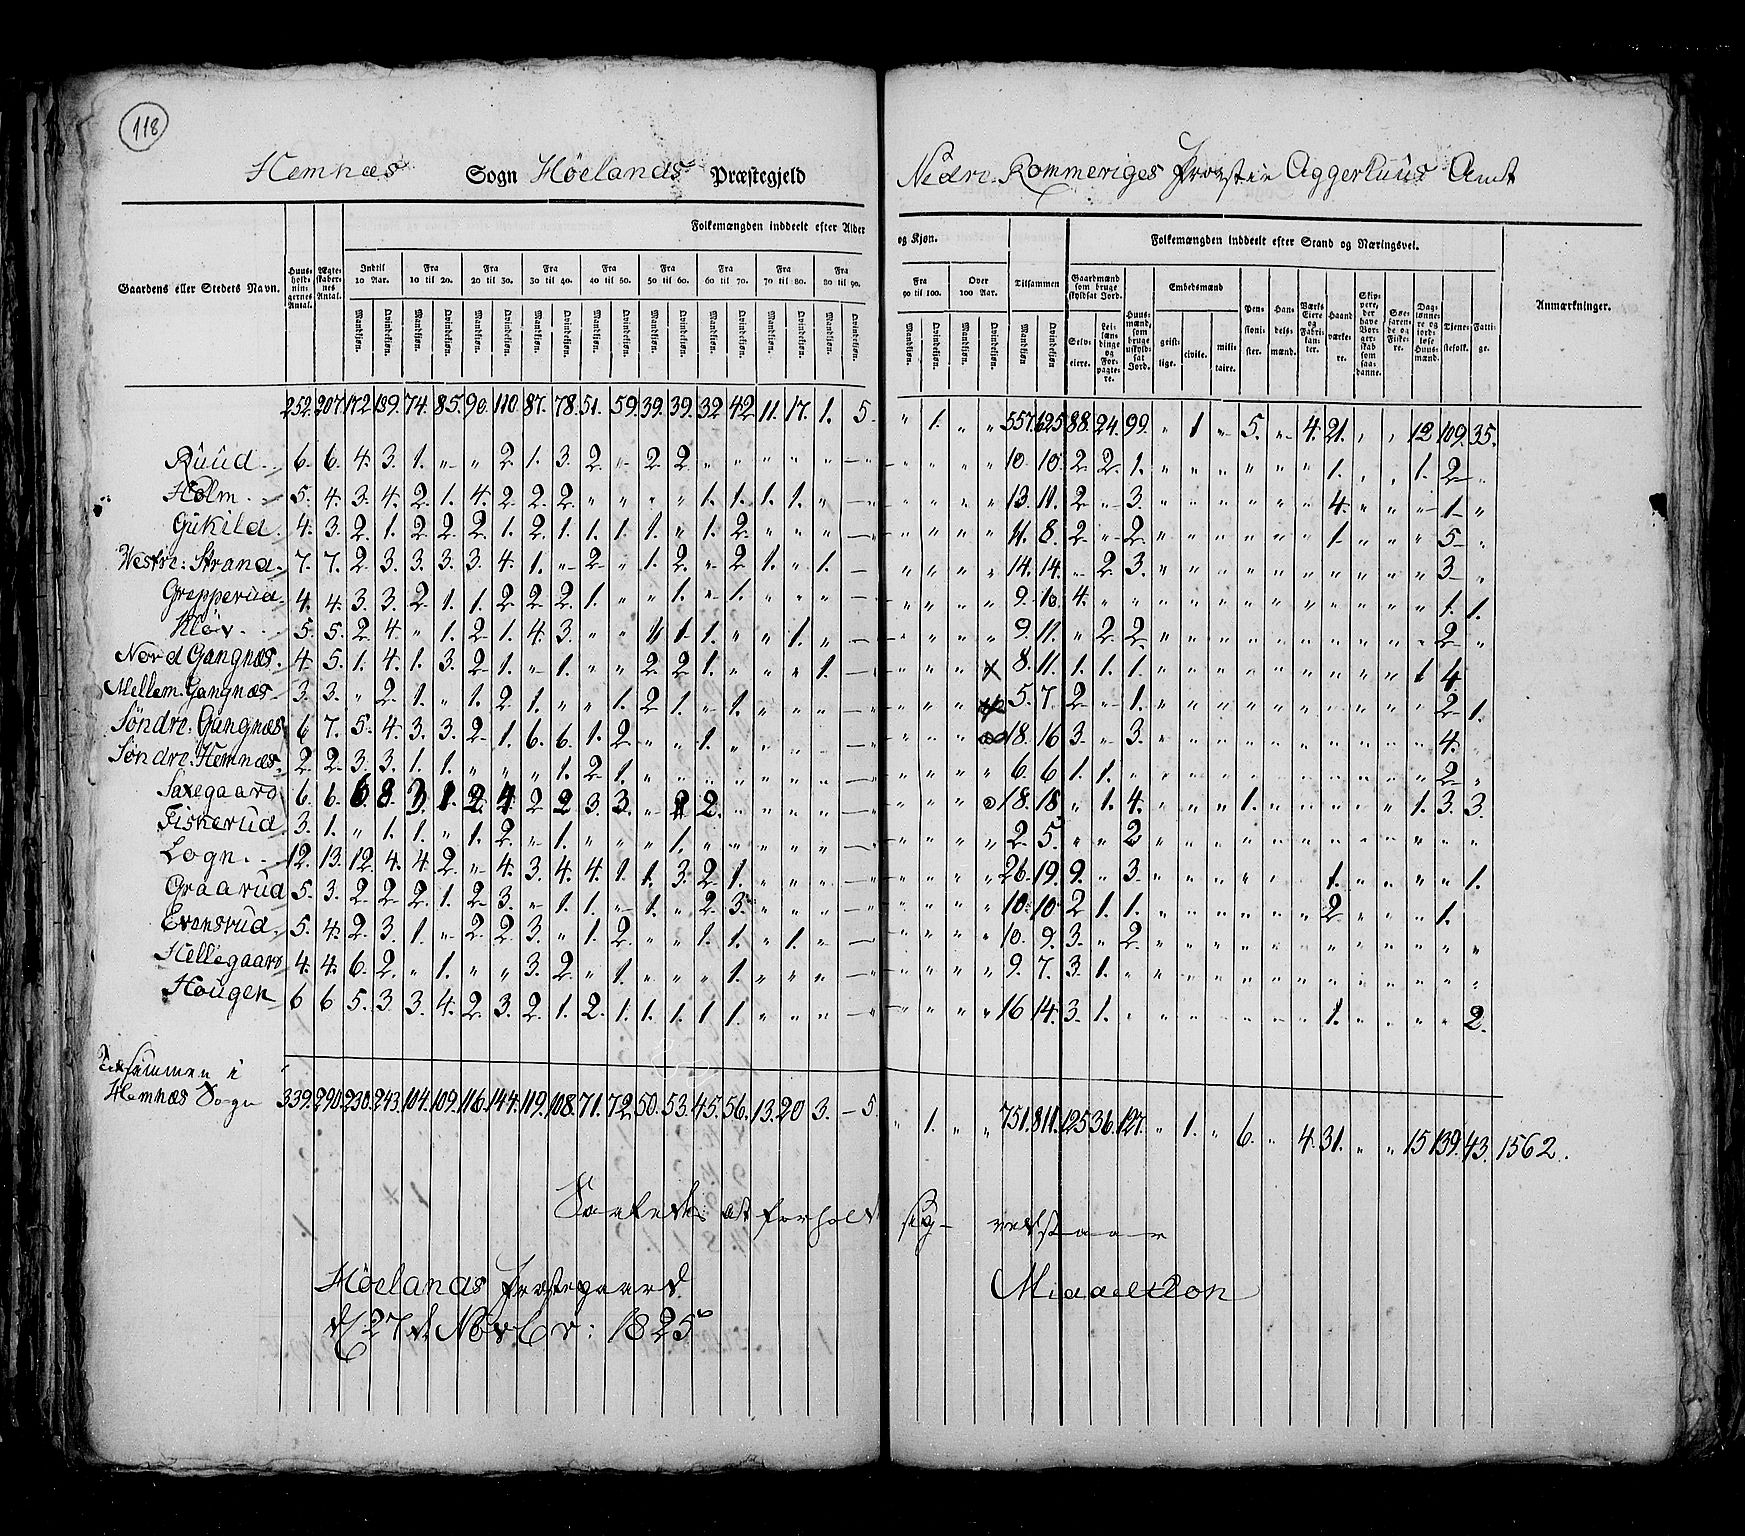 118
Hemnæs Sogn Höelands Præstegjeld Nedre Rommeriges Provstie Aggerhuus Amt
Folkemængden inddeelt efter Alder og Kjøn. Folkemængden inddeelt efter Stand og Næringsvei.
Gaardens eller Stedets Navn. Huusholdningernes Antal. Ægteskabernes Antal. Indtil 10 Aar. Fra 10 til 20. Fra 20 til 30. Fra 30 til 40. Fra 40 til 50. Fra 50 til 60. Fra 60 til 70. Fra 70 til 80. Fra 80 til 90. Fra 90 til 100. Over 100 Aar. Tilsammen Gaardmænd som bruge skyldsat Jord. Huusmænd, som bruge uskyldsat Jord. Embedsmænd Pensionister. Handelsmænd. Værks Eiere og Fabrikanter. Haandværkere. Skippere, der have Borgerskab som saadanne. Søefarende og Fiskere. Daglønnere og jordløse Huusmænd. Tjenestefolk. Fattige. Anmærkninger.
Mandkjøn. Qvindekjøn. Selveiere. Leilændinge og Forpagtere. geistlige. civile. militaire.
252. 207. 172. 199. 74. 85. 90. 110. 87. 78. 51. 59. 39. 39. 32 42 11. 17. 1. 5. " 1. " " 557. 625 88. 24. 99. " 1 " 5. " 4. 21. " " 12 109. 35.
Ruud 6. 6. 4. 3. 1. " " 2 1. 3. 2 " 2 2 " " " " " " " " " " 10. 10. 2 2 1. " " " " " " 1. " " 1. 2 "
Holm 5. 4. 3. 4. 2. 1. 4. 2 2 2 " " " " 1. 1. 1. 1. " " " " " " 13. 11. 2 " 3. " " " " " " 4. " " " 1 "
Gukild 4. 3. 2. 1. 2 2 2. 1. 2. 1. 1. 1. 1. " 1. 2 " " " " " " " " 11. 8. 2 " 2 " " " " " " 1 " " " 5 "
Westre: Strand 7. 7. 2. 3. 3. 3. 3. 4. 1. " 2 " 1. 2. " 2 1. " 1. " " " " 14. 14. " 2 3. " " " " " " " " " " 3 "
Grepperud 4. 4. 3. 3. 2 1. 1. 2 2 2 1. " " 1. " 1. " " " " " " " 9. 10. 4. " " " " " " " " " " " " 1. 1.
Kløv 5. 5. 2 4. " 1. 2 1. 4. 3. " " 1. 1. " " 1. " " " " " 9. 11. " 2 2 " " " " " " " " " " 2 "
Nord Gangnæs. 4. 5. 1. 4. 1. 3. 2 1. " 1. " " 2 2 1. " " " 1. " " " " 8. 11. 1. 1. 1. " " " " " " " " " 1 4
Mellem. Gangnæs 3. 3. " 2 1. " 1. 2 1. " " 1. 2 1. " 1. " " " " " " " 5. 7. 2 " 1. " " " " " " " " " " 2 1.
Söndre. Gangnæs 6 7. 5. 4. 3. 3. 2 1. 6. 6. 1. 2 " " 1. " " " " " " " " 18. 16 3. " 3. " " " " " " " " " " 4. "
Söndre. Hemnæs. 2 2 3. 3. 1. 1. " " " 1. 2 1. " " " " " " " " " " " " 6. 6 1. 1. " " " " " " " " " " " 2 "
Saxegaard 6. 6. 6 8. 3 1. 2 4 2 2 3. 3. " 2 2. " " " " " " " " 18. 18. " 1. 4. " " " 1. " " " " " 1. 3. 3.
Fiskerud. 3. 1. " 1. 1. " 1. 2 " 1. " " " 1. " " " " " " " " " " 2. 5. " " 2 " " " " " " " " " " " "
Logn. 12. 13. 12. 4. 4. 2 " 4. 3. 4. 4. 1. 1. 3. 2 1. " " " " " " " " 26. 19. 9. " 3. " " " " " " 1. " " " " 1.
Graarud 5. 3. 2 2 2 1. 2 3. " 1. 1. " 1. " 2 3. " " " " " " " " 10. 10 2 1. 1. " " " " " " 2 " " " 1.
Evensrud. 5. 4. 2. 3. 1. " 2 2 3. " 1. 2 " " 1. 1. " 1. " " " " " 10. 9. 3. " 2 " " " " " " " " " " " "
Hellegaard 4. 4. 6. 2. " 1. " " 3. 2 " 1. " " " 1. " " " " " " " " 9. 7. 3. 1. " " " " " " " " " " " " "
Hougen 6 6 5. 3. 3. 4. 2 3. 2 1. 2. 1. 1. 1. 1 1. " " " " " " " " 16 14. 3. 1. " " " " " " " 1. " " " " 2.
Tilsammen i
Hemnæs Sogn 339. 290. 230. 243. 104. 109. 116. 144. 119. 108. 71. 72. 50. 53. 45. 56. 13. 20 3. 5 " 1. " " 751. 811. 125 36. 127. " 1. " 6. " 4. 31. " " 15 139. 43. 1562.
Saaledes at forholde sig vedstaaer
Höelands Præstegaard Middelthon
d 27d Novbr: 1825